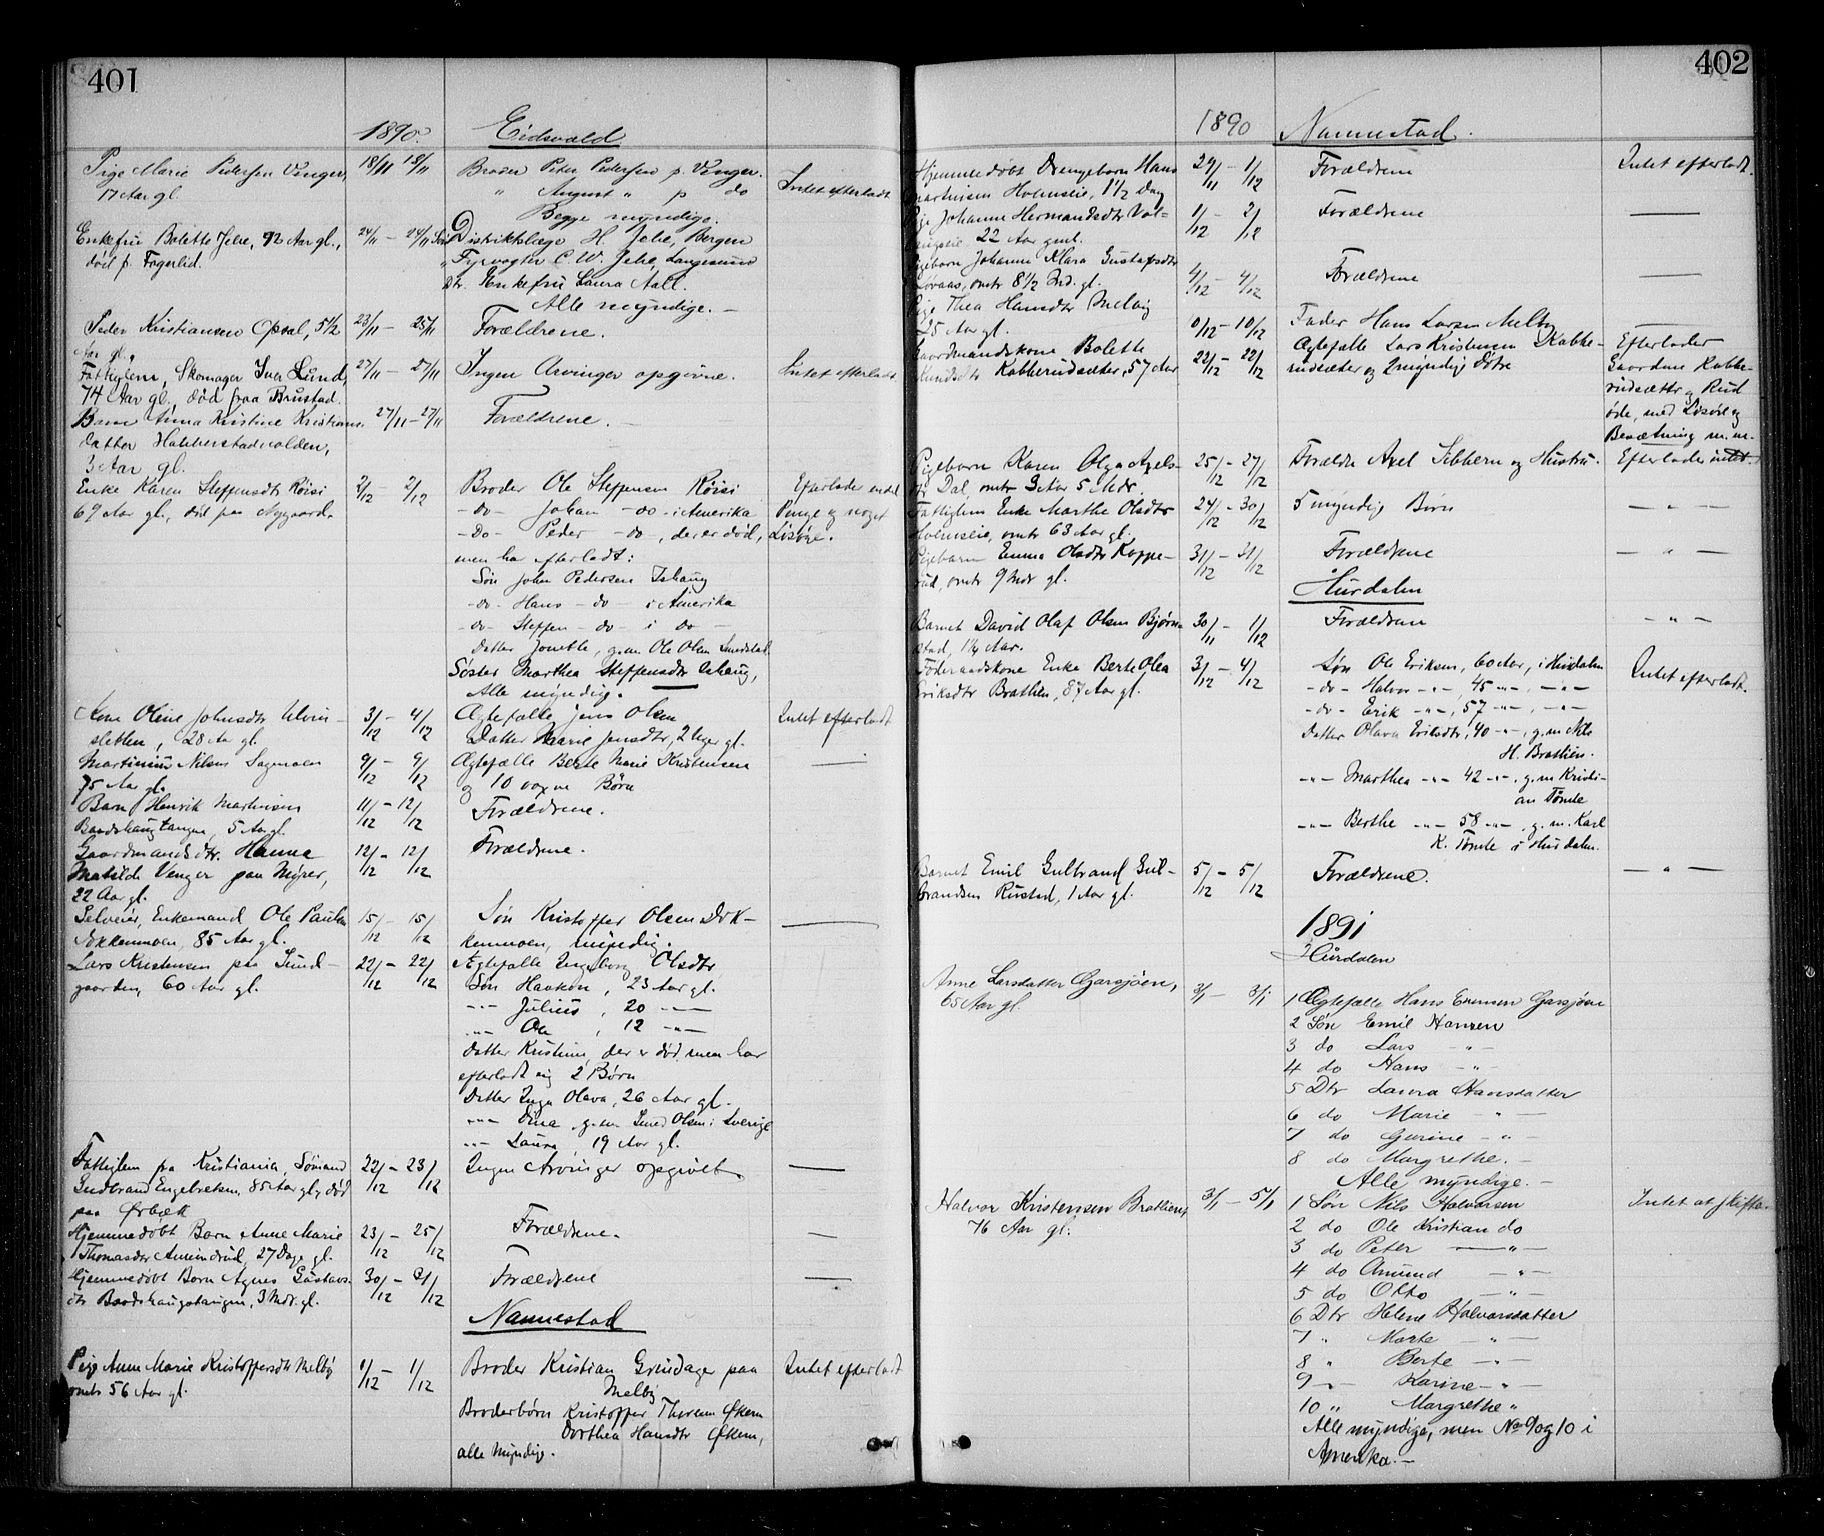 401
1890. Eidsvold
Pige Marie Pedersen Venger, 18/11 18/11 Broder Peter Pedersen p. Venger.
17 Aar gl. " August " p do Intet efterladt
Begge myndige.
Enkefru Bolette Jehe, 92 Aar gl., 24/11 – 24/11 Søn Distriktslæge H. Jehe, Bergen
død p. Fagerlid. " Fyrvogter C. W. Jehe, Langesund
Dtr. Enkefru Laura Aall.
Alle myndige. –
Peder Kristiansen Opsal, 5 1/2 23/11 – 25/11 Forældrene.
Aar gl.
Fattiglem, Skomager Iver Lund, 27/11 – 27/11 Ingen Arvinger opgivne. Intet efterladt
74 Aar gl., død fraa Brustad.
Barn Anna Kristine Kristians- 27/11 – 27/11 Forældrene.
datter Habberstadvolden,
3 Aar gl.
Enke Karen Steffensdtr Röisi 2/12 – 2/12 Broder Ole Steffensen Röisi Efterlader endel
69 Aar gl., död paa Nygaard. – do – Johan – do – i Amerika Penge og noget
– Do – Peder – do –, der er död, Lösöre.
men har efterladt:
Sön John Pedersen Ishaug
– do – Hans – do – i Amerika
– do – Steffen – do – i Do –
Datter Jonette, g. m. Ole Olsen
Søster Marthea Steffensdtr Ishaug,
Alle myndige.
Kone Oline Johnsdtr Ulvin- 3/12 – 4/12 Ægtefælle Jens Olsen Intet efterladt
sletten, 28 Aar gl. Datter Marie Jensdtr, 2 Uger gl.
Martinius Nilsen Sagmoen 9/12 – 9/12 Ægtefælle Berte Marie Kristensen —
75 Aar gl. og 10 voxne Börn
Barn Henrik Martinsen 11/12 – 12/12 Forældrene.
Baadshaugtangen, 5 Aar gl.
Gaardmandsdtr. Hanna 12/12 – 12/12 Forældrene.
Matilde Venger paa Myrer,
22 Aar gl.
Selveier, Enkemand Ole Paulsen 15/12 – 15/12 Sön Kristoffer Olsen Dok- —
Dokkenmoen, 85 Aar gl. kenmoen, myndig.
Lars Kristensen paa Sund- 22/12 – 22/12 Ægtefælle Ingeborg Olsdtr
gaarden, 60 Aar gl. Sön Haakon, 23 Aar gl.
– " – Julius, 20 – " –
– " – Ole, 12 – " –
Datter Kristine, der er död men har
efterladt sig 2 Børn
Datter Inga Olava, 26 Aar gl.
– " – Dina, g. m. Smed Olsen i Sverige
– " – Laura, 19 Aar gl.
Fattiglem fra Kristiania, Sömand 22/12 – 23/12 Ingen Arvinger opgivet —
Gudbrand Engebretsen, 85 Aar gl., död
paa Ørbæk
Hjemmedöbt Barn Anne Marie 23/12 – 25/12 Forældrene. —
Thomasdtr Amundrud, 27 Dage gl.
Hjemmedöbt Barn Agnes Gustavs- 30/12 – 31/12 Forældrene —
dtr Baadshaugstangen, 3 Mdr. gl.
Nannestad
Pige Anne Marie Kristoffersdtr Melby 1/12 – 1/12 Broder Kristian Grindager paa Intet efterladt
omtr 56 Aar gl. Melby
Broderbörn Kristoffer Thoresen Økern
Dorthea Hansdtr Økern,
alle Myndige.
402
1890 Nannestad.
Hjemmedöbt Drengebarn Hans 29/11 – 1/12 Forældrene Intet efterladt.
Martinsen Holmseie, 1 1/2 Dag
Pige Johanne Hermandsdtr Vol- 1/12 – 2/12 Forældrene —
22 Aar gml.
Pigebarn Johanne Klara Gustafsdtr 4/12 – 4/12 Forældrene —
Løvaas, omtr 8 1/2 Md. gl.
Pige Thea Hansdtr Melby
25 Aar gl. 10/12 – 10/12 Fader Hans Larsen Melby —
Gaardmandskone Bolette 22/12 – 22/12 Ægtefælle Lars Kristensen Kabbe- Efterlader
Knudsdtr Kabberudsæter, 57 Aar rudsæter og 2 myndige Døtre Gaardene Kabbe-
rudsætr og Rud
øde, med Lösöre og
Besætning m. m.
Pigebarn Karen Olga Axels- 25/12 – 27/12 Forældre Axel Sibbern og Hustru. Efterlader intet.
dtr Dal, omtr 3 Aar 5 Mdr.
Fattiglem Enke Marthe Olsdtr 24/12 – 30/12 5 myndige Børn – " –
Holmseie, omtr 63 Aar gl.
Pigebarn Emma Olsdtr Koppe- 31/12 – 31/12 Forældrene – " –
rud, omtr 9 Mdr gl.
Hurdalen
Barnet David Olaf Olsen Bjørn- 30/11 – 1/12 Forældrene – " –
stad, 1 1/4 Aar.
Føderaadskone Enke Berte Olea 3/12 – 4/12 Søn Ole Eriksen, 60 Aar, i Hurdalen Intet efterladt.
Eriksdtr Brathen, 87 Aar gl. – do – Halvor – " –, 45 – " –, – " –
– do – Erik – " –, 57 – " –, – " –
Datter Olava Eriksdtr, 40 – " –, g. m.
H. Brathen.
– " – Marthea – " – 42 – " –, g. m Kristi-
an Tømte
– " – Berthe – " – 58 – " –, g. m. Karl
K. Tømte i Hurdalen.
Barnet Emil Gulbrand Gul- 5/12 – 5/12 Forældrene. – " –
brandsen Rustad, 1 Aar gl.
1891
Hurdalen
Anne Larsdatter Garsjøen, 3/1 – 3/1 1 Ægtefælle Hans Evensen Garsjøen
65 Aar gl. 2 Søn Emil Hansen
3 do Lars – " –
4 do Hans – " –
5 Dtr Laura Hansdatter
6 do Marie – " –
7 do Gurine – " –
8 do Margrethe. –
Alle myndige. –
Halvor Kristensen Brathens, 3/1 – 5/1 1 Søn Nils Halvorsen Intet at skifte.
76 Aar gl. 2 do Ole Kristian do
3 do Peter — " —
4 do Amund – " –
5 do Otto – " –
6 Dtr Helene Halvorsdatter
7 " Marte – " –
8 " Berte – " –
9 " Karine – " –
10 " Margrethe "
Alle myndige, men No 9 og 10 i
Amerika. –